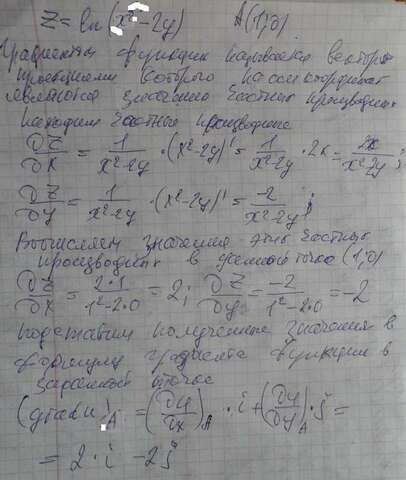 Z = ln(x²-2y) A(1;0)
Градиентом функции называется вектор
проекциями которого на оси координат
являются значения частных производных
находим частные производные
∂Z/∂x = 1/(x²-2y) · (x²-2y)' = 1/(x²-2y) · 2x = 2x/(x²-2y);
∂Z/∂y = 1/(x²-2y) · (x²-2y)' = -2/(x²-2y);
Вычисляем значения этих частных
производных в данной точке (1;0)
∂Z/∂x = 2·1/(1²-2·0) = 2; ∂Z/∂y = -2/(1²-2·0) = -2
подставим полученные значения в
формулу градиента функции в
заданной точке
(grad u)A = (∂u/∂x)A · i + (∂u/∂y)A · j =
= 2·i - 2j